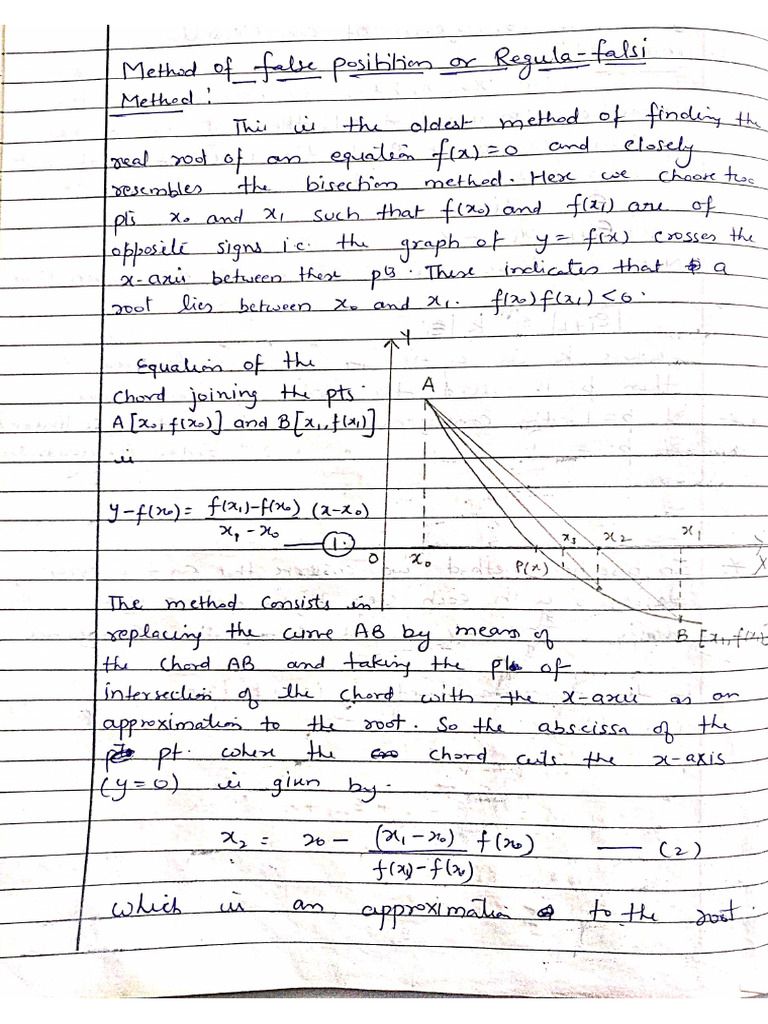 Method of false positition or Regula-falsi
Method:
This is the oldest method of finding the
real root of an equation f(x)=0 and closely
resembles the bisection method. Here we choose two
pts x₀ and x₁ such that f(x₀) and f(x₁) are of
opposite signs i.e. the graph of y = f(x) crosses the
x-axis between these pts. These indicates that a
root lies between x₀ and x₁. f(x₀)f(x₁) < 0.
Equation of the
chord joining the pts.
A[x₀, f(x₀)] and B[x₁, f(x₁)]
is
y-f(x₀) = (f(x₁)-f(x₀))/(x₁-x₀) (x-x₀)
—— (1.)
Y
A
O
x₀
P(x)
x₃
x₂
x₁
X
B [x₁, f(x₁)
The method consists in
replacing the curve AB by means of
the chord AB and taking the pt. of
intersection of the chord with the x-axis as an
approximation to the root. So the abscissa of the
pt. where the chord cuts the x-axis
(y=0) is given by.
x₂ = x₀ - (x₁-x₀)/(f(x₁)-f(x₀)) f(x₀) —— (2)
which is an approximation to the root.